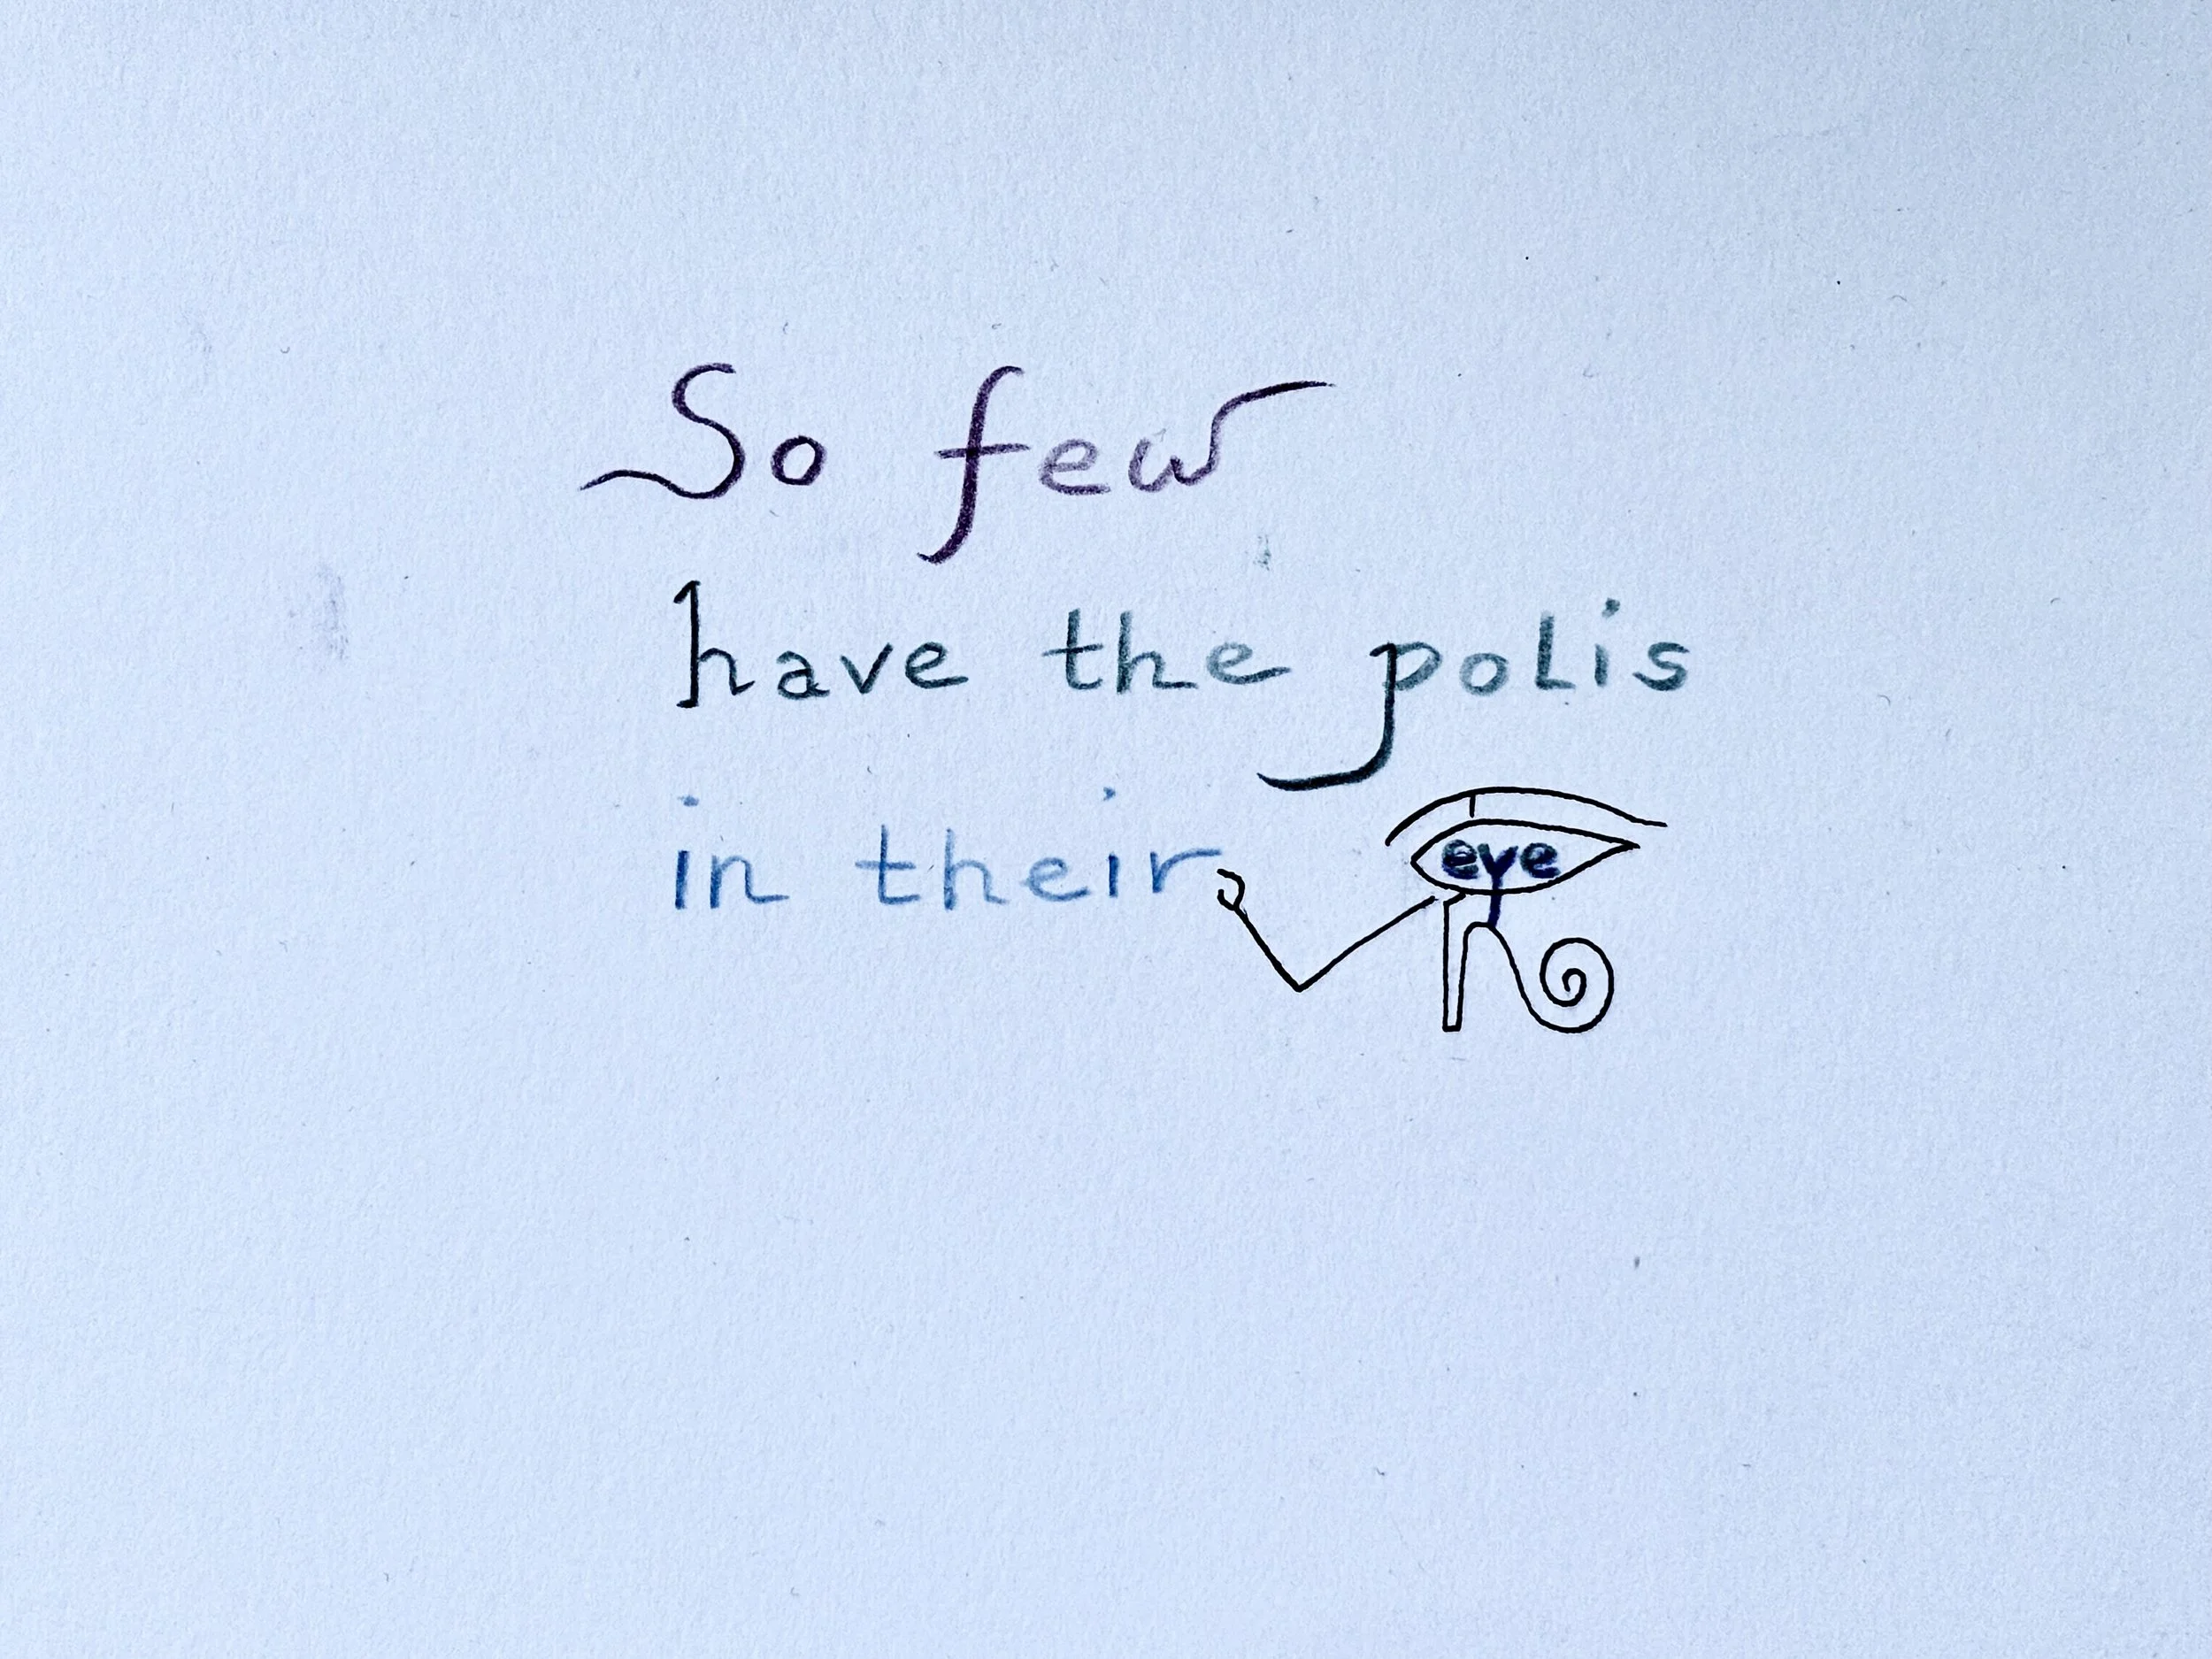 So few
have the polis
in their eye